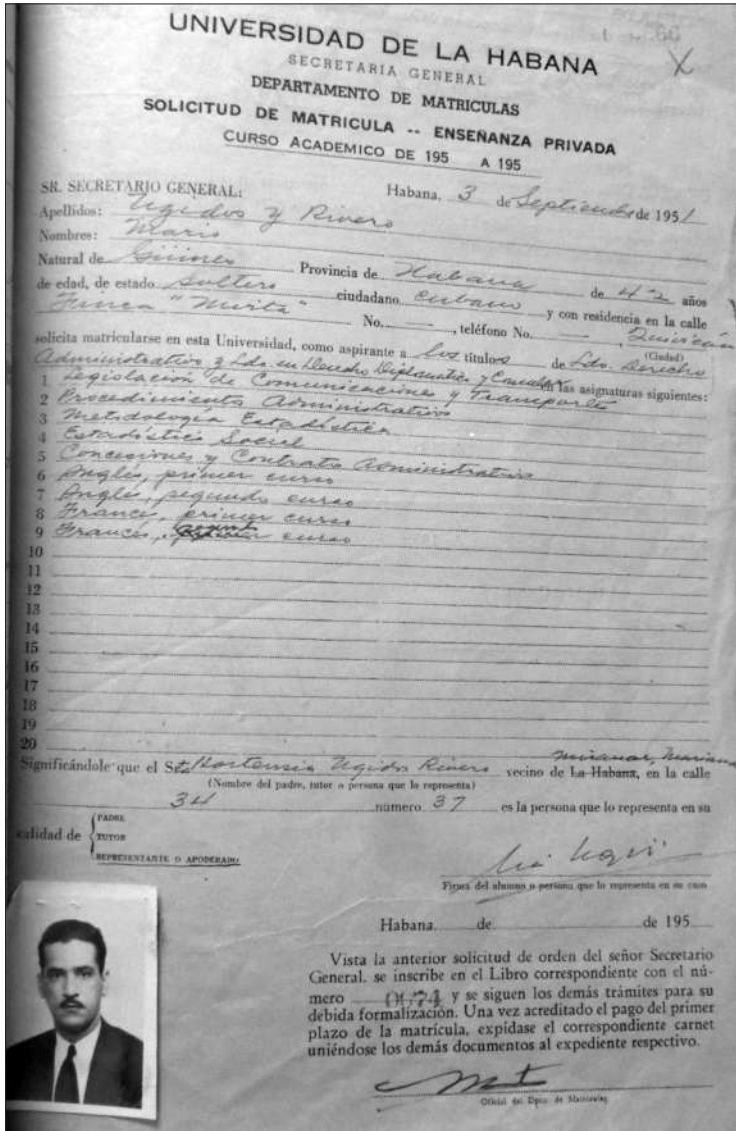 UNIVERSIDAD DE LA HABANA
SECRETARIA GENERAL
DEPARTAMENTO DE MATRICULAS
SOLICITUD DE MATRICULA -- ENSEÑANZA PRIVADA
CURSO ACADEMICO DE 195 A 195
X
SR. SECRETARIO GENERAL: Habana, 3 de Septiembre de 1951
Apellidos: Ugidos y Rivero
Nombres: Mario
Natural de Güines Provincia de Habana de 42 años
de edad, de estado Soltero ciudadano cubano y con residencia en la calle
Finca "Mirta" No. — , teléfono No. — , Quivicán
(Ciudad)
solicita matricularse en esta Universidad, como aspirante a los títulos de Ldo. Derecho
Administrativo y Ldo. en Derecho Diplomático y Consular en las asignaturas siguientes:
1 Legislación de Comunicaciones y Transporte
2 Procedimiento Administrativo
3 Metodología Estadística
4 Estadística Social
5 Concesiones y Contratos Administrativos
6 Inglés, primer curso
7 Inglés, segundo curso
8 Francés, primer curso
9 Francés, segundo curso
10
11
12
13
14
15
16
17
18
19
20
Significándole que el Sta Hortensia Ugidos Rivero vecino de La Habana, en la calle
Miramar, Marianao
(Nombre del padre, tutor o persona que lo representa)
34 número 37 es la persona que lo representa en su
calidad de { PADRE
TUTOR
REPRESENTANTE O APODERADO
Firma del alumno o persona que lo representa en su caso
Habana, de de 195
Vista la anterior solicitud de orden del señor Secretario
General, se inscribe en el Libro correspondiente con el nú-
mero 0074 y se siguen los demás trámites para su
debida formalización. Una vez acreditado el pago del primer
plazo de la matrícula, expídase el correspondiente carnet
uniéndose los demás documentos al expediente respectivo.
Oficial del Dpto. de Matrículas